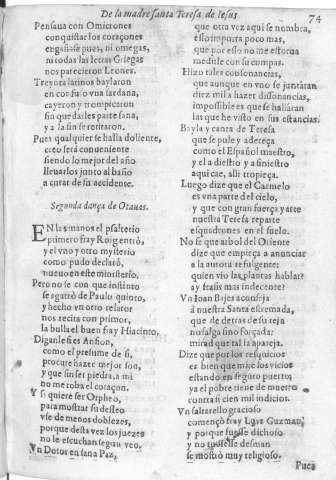 De la madre santa Teresa de Iesus
74
Pensaua con Omicrones
conquistar los coraçones
engañase pues, ni omegas,
ni todas las letras Griegas
nos parecieron Leones.
Treynta latinos baylaron
en confuso vna sardana,
cayeron y trompicaron
sin quedarles parte sana,
y a la fin se retiraron.
Pues qualquier se halla doliente,
creo será conueniente
siendo lo mejor del año
lleuarlos junto al baño
a curar de su accidente.
Segunda dança de Otauas.
EN las manos el psalterio
primero fray Roig entrò,
y el vno y otro mysterio
como pudo declarò,
nueuo en este ministerio.
Pero no se con que instinto
se agarrò de Paulo quinto,
y hecho vn otro relator
nos recita con primor,
la bulla el buen fray Hiacinto,
Diganle si es Anfion,
como el presume de si,
procure hazer mejor son,
y que sin ser piedra, a mi
no me roba el coraçon.
Y si quiere ser Orpheo,
para mostrar su desseo
vse de menos doblezes,
porque desta vez los juezes
no le escuchan segun veo.
Vn Dotor en sana Paz,
que otra vez aqui se nombra,
esso importa poco mas,
que por esso no me estorua
medille con su compas.
Hizo tales consonancias,
que aunque en vno se juntàran
diez mil a hazer dissonancias,
impossible es que se hallàran
las que he visto en sus estancias.
Bayla y canta de Teresa
que se pule y adereça
como el Español maestro,
y el a diestro y a siniestro
aqui cae, alli tropieça.
Luego dize que el Carmelo
es vna parte del cielo,
y que con gran fuerça y arte
nuestra Teresa reparte
esquadrones en el suelo.
No se que arbol del Oriente
dize que empieça a anunciar
a la aurora refulgente:
quien vio las plantas hablar?
ay frasis mas indecente?
Vn Ioan Bajes aconseja
á nuestra Santa estremada,
que de detras de su reja
no salga sino forçada:
mirad que tal la apareja.
Dize que por los resquicios
es bien que mire los vicios
estando en seguro puerto;
ya el pobre tiene de muerto
contra si cien mil indicios.
Vn saltarello gracioso
començò fray Luys Guzman,
y porque fuesse dichoso
y no tuuiesse desman
se mostrò muy religioso.
Pues